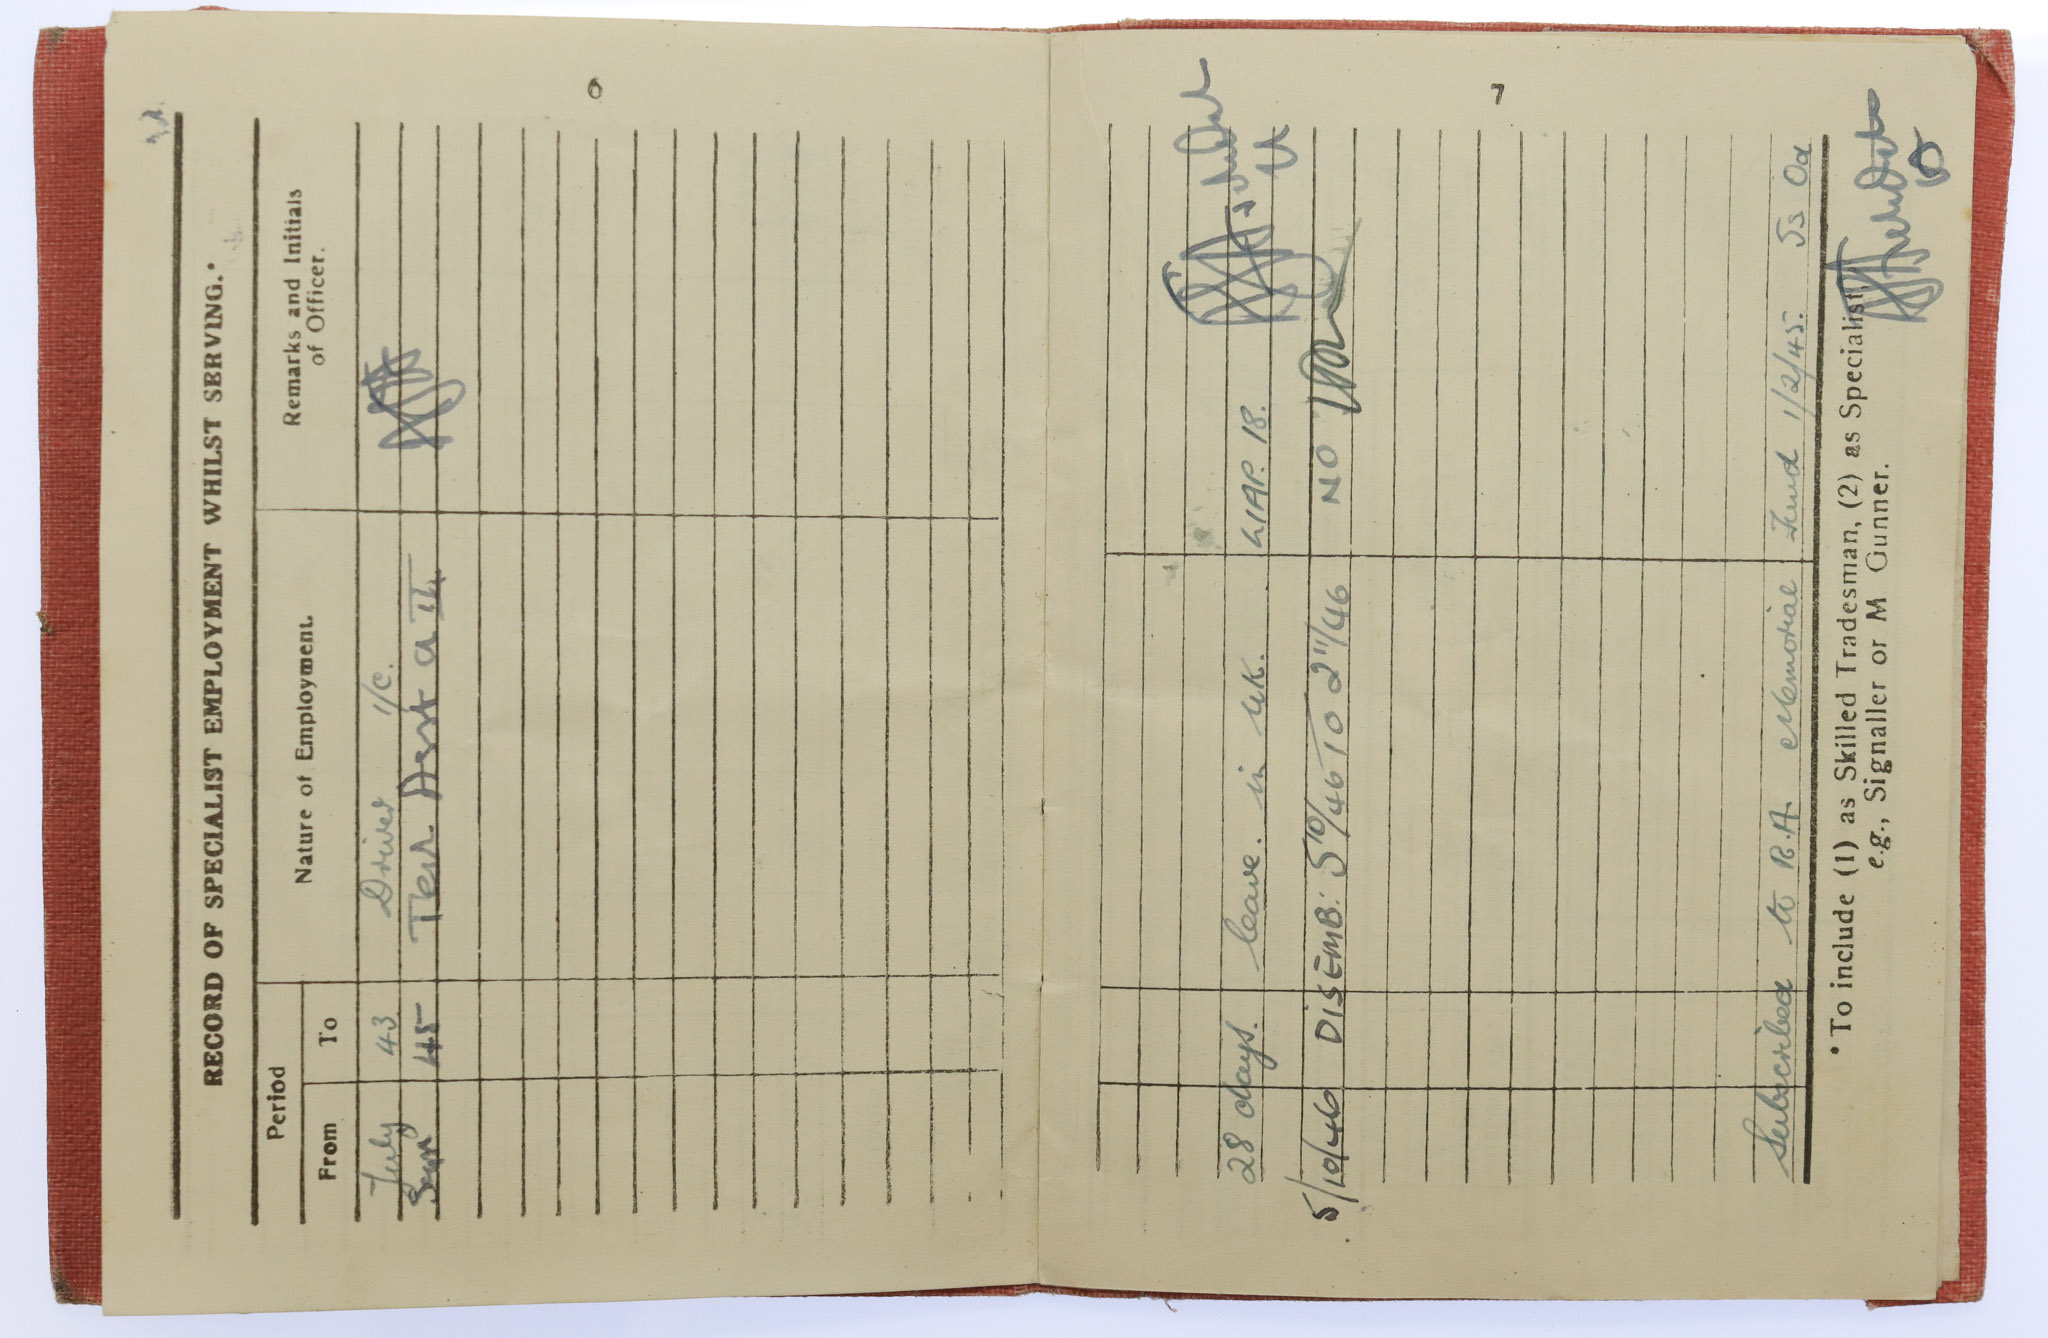 6
RECORD OF SPECIALIST EMPLOYMENT WHILST SERVING.*
Period Nature of Employment. Remarks and Initials of Officer.
From To
July 43 Driver i/c.
45 Test a III
7
28 days. leave. in UK. LIAP. 18.
5/10/46 DISEMB: 5/10/46 TO 2/11/46 NO
Subscribed to R.A. Memorial Fund 1/2/45. 5s 0d
* To include (1) as Skilled Tradesman, (2) as Specialist,
e.g., Signaller or M Gunner.